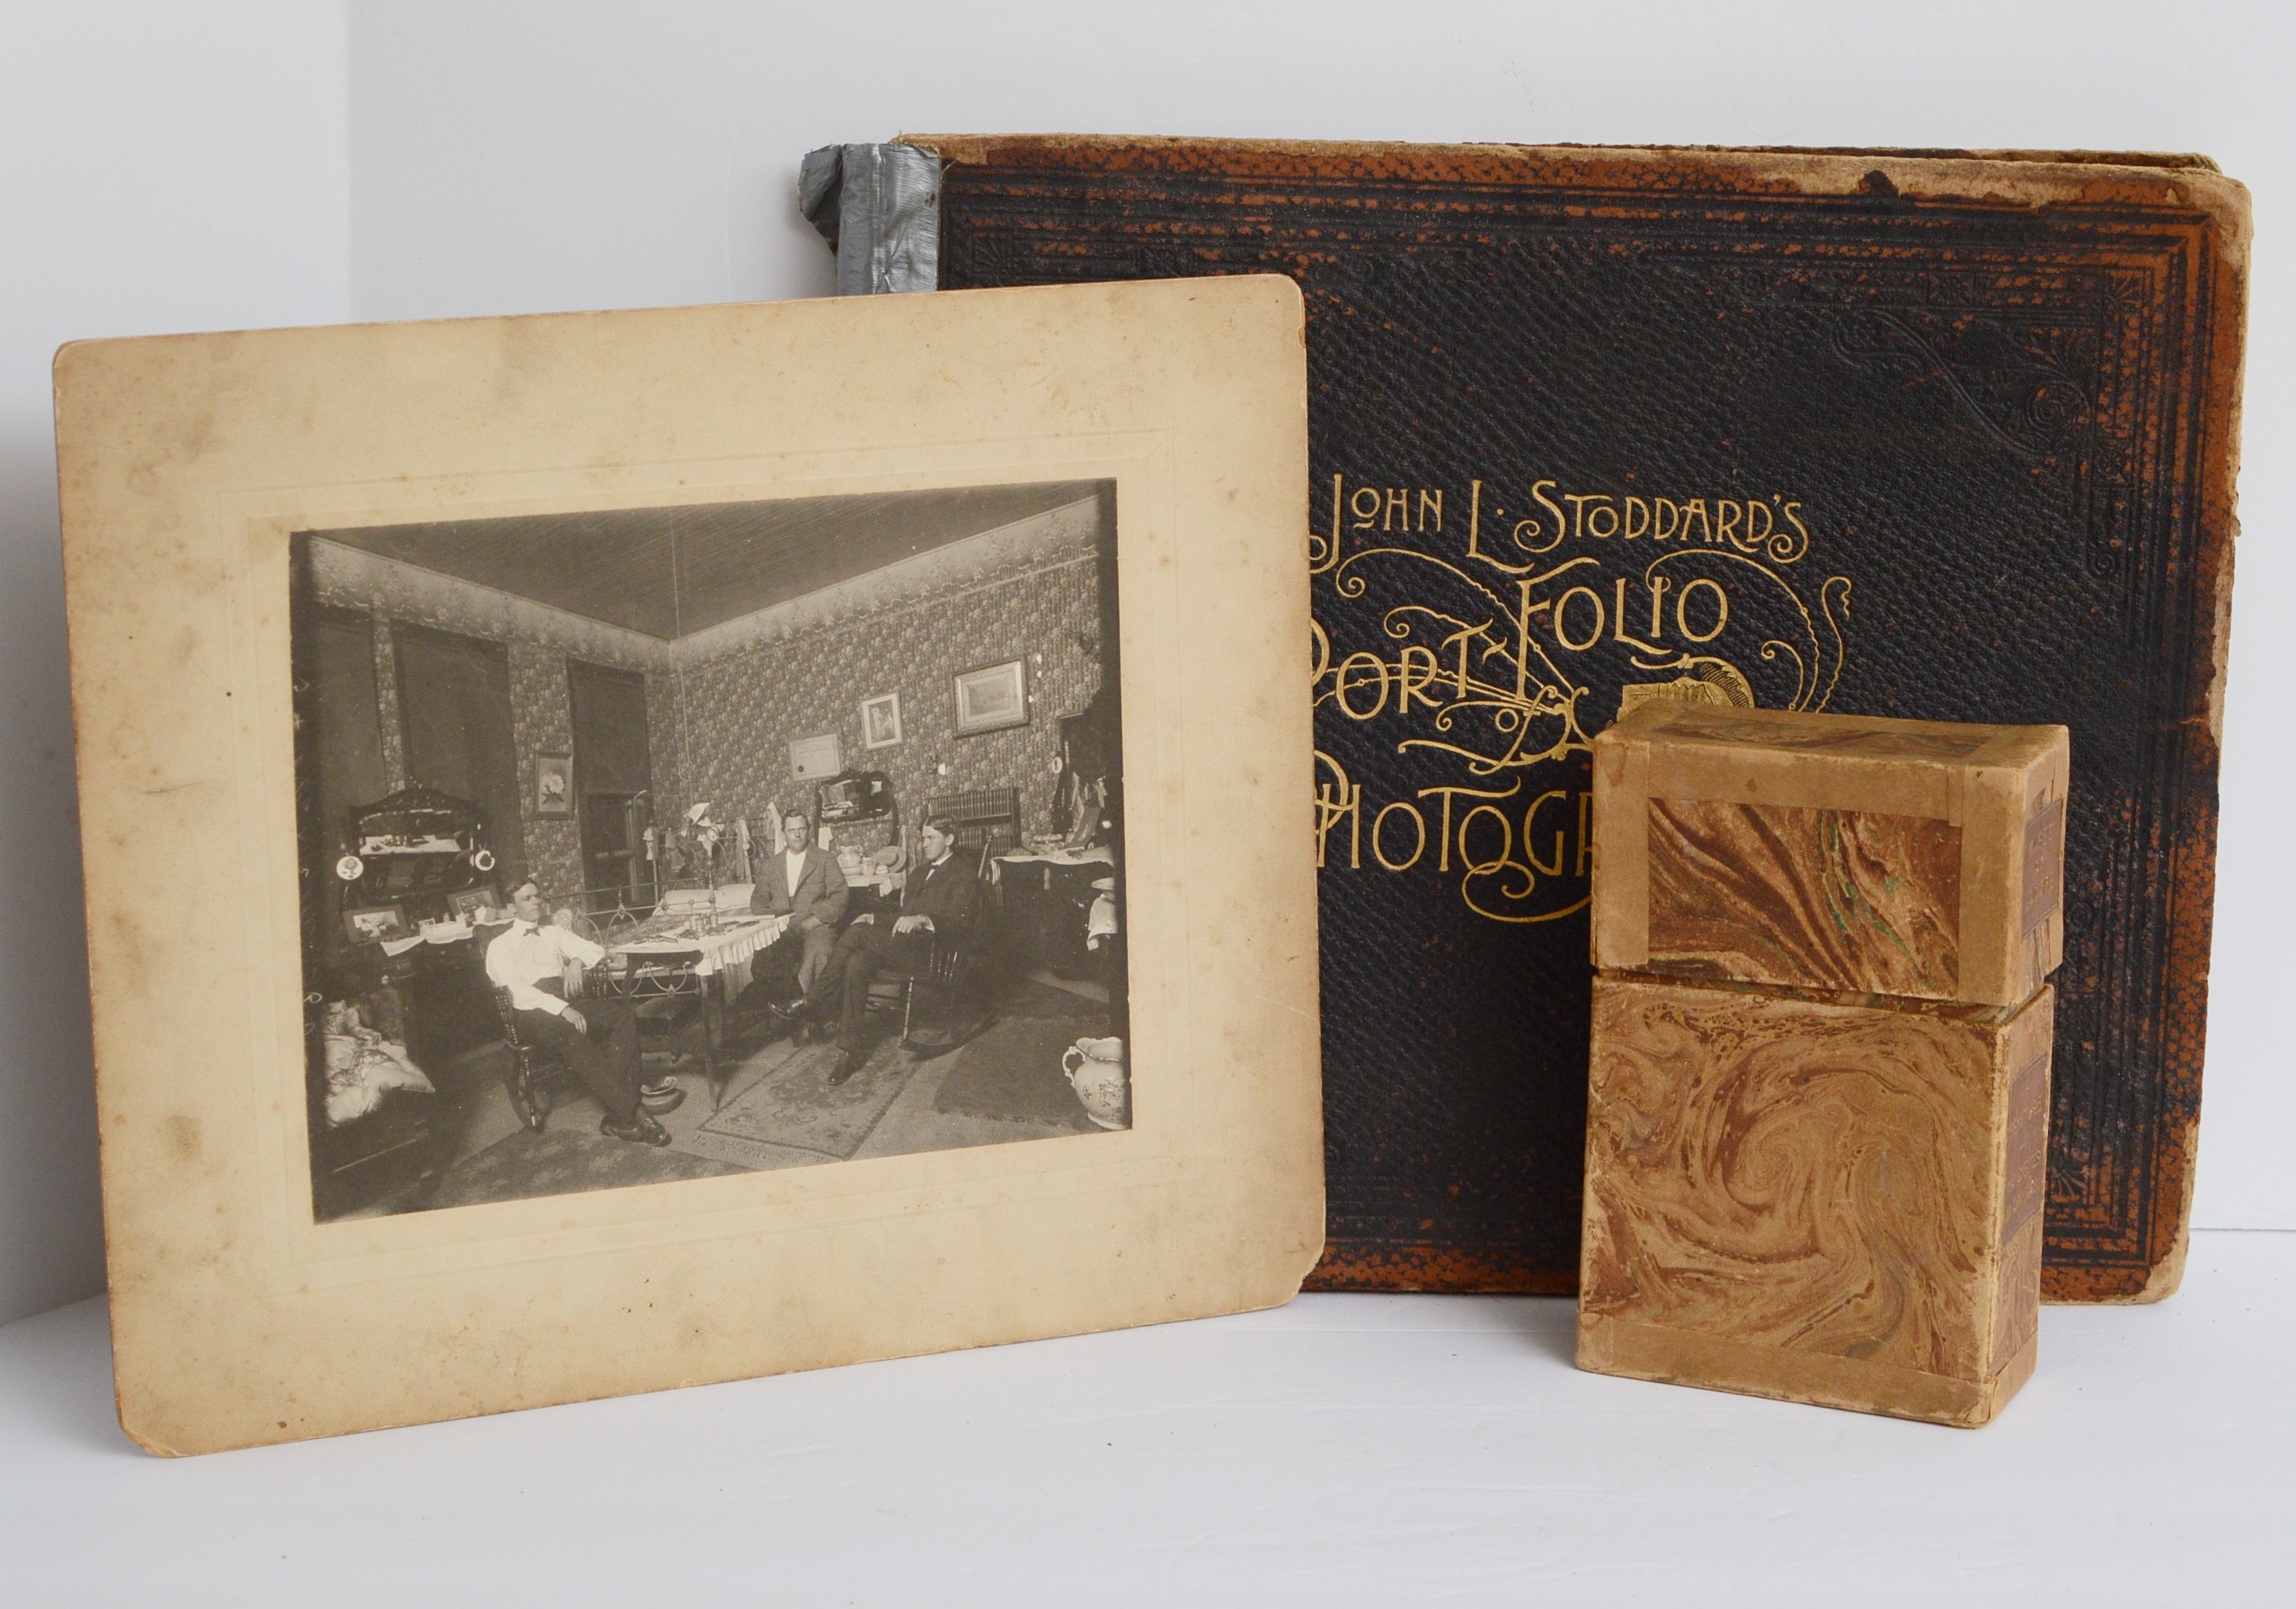 JOHN L. STODDARD'S
FOLIO
PORT-
OF
PHOTOGR